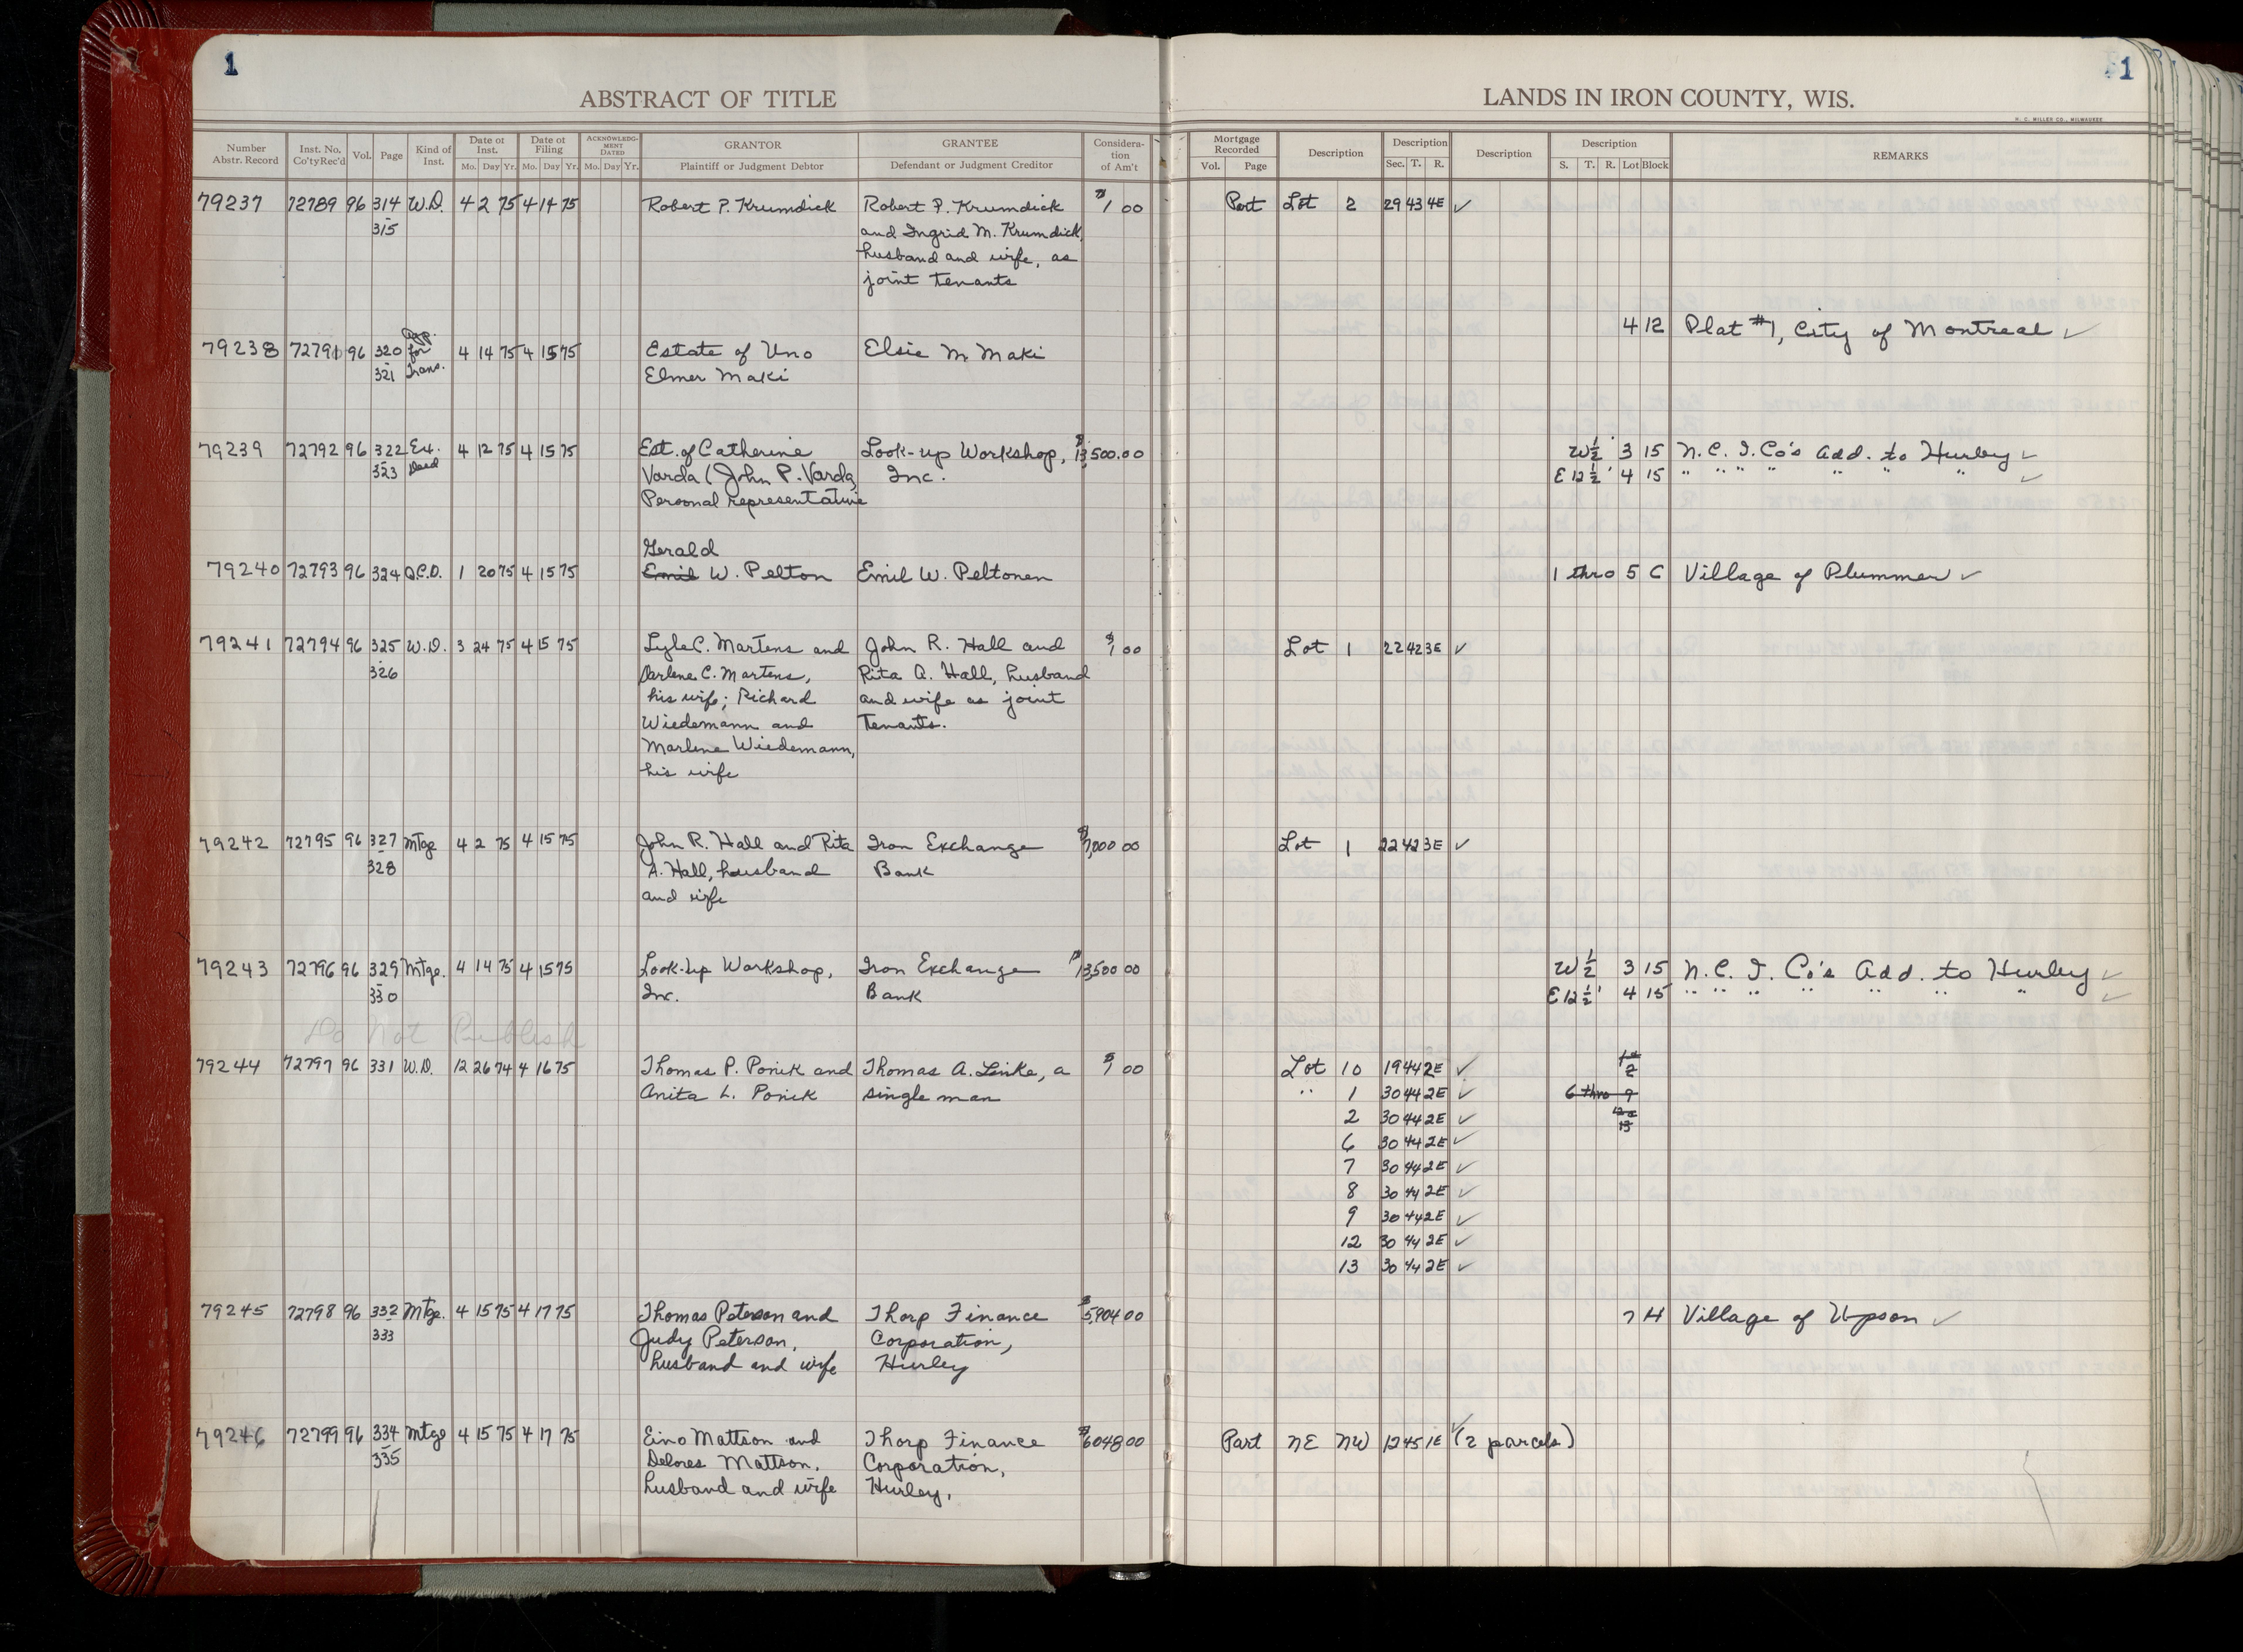 1
1
ABSTRACT OF TITLE
LANDS IN IRON COUNTY, WIS.
H. C. MILLER CO., MILWAUKEE
Number Abstr. Record | Inst. No. Co'ty Rec'd | Vol. | Page | Kind of Inst. | Date of Inst. Mo. Day Yr. | Date of Filing Mo. Day Yr. | ACKNOWLEDGMENT DATED Mo. Day Yr. | GRANTOR Plaintiff or Judgment Debtor | GRANTEE Defendant or Judgment Creditor | Consideration of Am't | Mortgage Recorded Vol. Page | Description | Description Sec. T. R. | Description | Description S. T. R. Lot Block | REMARKS
79237 72789 96 314 W.D. 4 2 75 4 14 75 Robert P. Krumdick Robert P. Krumdick $1 00 Part Lot 2 29 43 4E ✓
315 and Ingrid M. Krumdick,
husband and wife, as
joint tenants
4 12 Plat #1, City of Montreal ✓
App.
79238 72791 96 320 for 4 14 75 4 15 75 Estate of Uno Elsie M. Maki
321 Trans. Elmer Maki
79239 72792 96 322 Ex. 4 12 75 4 15 75 Est. of Catherine Look-up Workshop, $13,500.00 W½ 3 15 N.C.I. Co's Add. to Hurley ✓
323 Deed Varda (John P. Varda, Inc. E 12½' 4 15 " " " " " " " ✓
Personal representative
Gerald
79240 72793 96 324 Q.C.D. 1 20 75 4 15 75 Emil W. Pelton Emil W. Peltonen 1 thro 5 C Village of Plummer ✓
79241 72794 96 325 W.D. 3 24 75 4 15 75 Lyle C. Martens and John R. Hall and $1 00 Lot 1 22 42 3E ✓
326 Darlene C. Martens, Rita A. Hall, husband
his wife; Richard and wife as joint
Wiedemann and tenants.
Marlene Wiedemann,
his wife
79242 72795 96 327 Mtge 4 2 75 4 15 75 John R. Hall and Rita Iron Exchange $7,000 00 Lot 1 22 42 3E ✓
328 A. Hall, husband Bank
and wife
79243 72796 96 329 Mtge. 4 14 75 4 15 75 Look-up Workshop, Iron Exchange $13,500 00 W½ 3 15 N.C.I. Co's Add. to Hurley ✓
330 Inc. Bank E 12½' 4 15 " " " " " " " ✓
Do Not Publish
79244 72797 96 331 W.D. 12 26 74 4 16 75 Thomas P. Ponik and Thomas A. Linke, a $1 00 Lot 10 19 44 2E ✓ 2
Anita L. Ponik single man " 1 30 44 2E ✓ 6 thro 9
2 30 44 2E ✓ 13
6 30 44 2E ✓
7 30 44 2E ✓
8 30 44 2E ✓
9 30 44 2E ✓
12 30 44 2E ✓
13 30 44 2E ✓
79245 72798 96 332 Mtge. 4 15 75 4 17 75 Thomas Peterson and Thorp Finance $5,904 00 7 H Village of Upson ✓
333 Judy Peterson, Corporation,
husband and wife Hurley
79246 72799 96 334 Mtge 4 15 75 4 17 75 Eino Mattson and Thorp Finance $6048 00 Part NE NW 12 45 1E ✓ (2 parcels)
335 Delores Mattson, Corporation,
husband and wife Hurley,